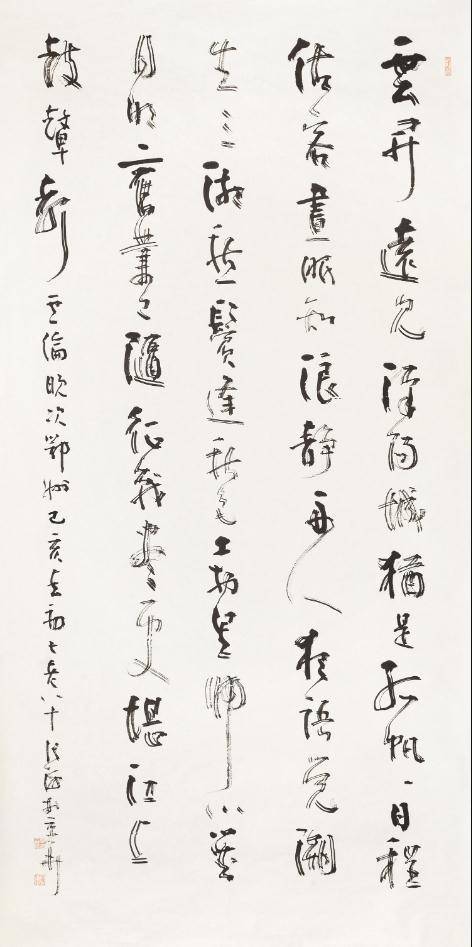 雲開遠見漢陽城猶是孤帆一日程
估客晝眠知浪靜舟人夜語覺潮
生三湘愁鬢逢秋色万里歸心對
月明舊業已隨征戰盡更堪江上
鼓鼙聲 倫晚次鄂州己亥八十